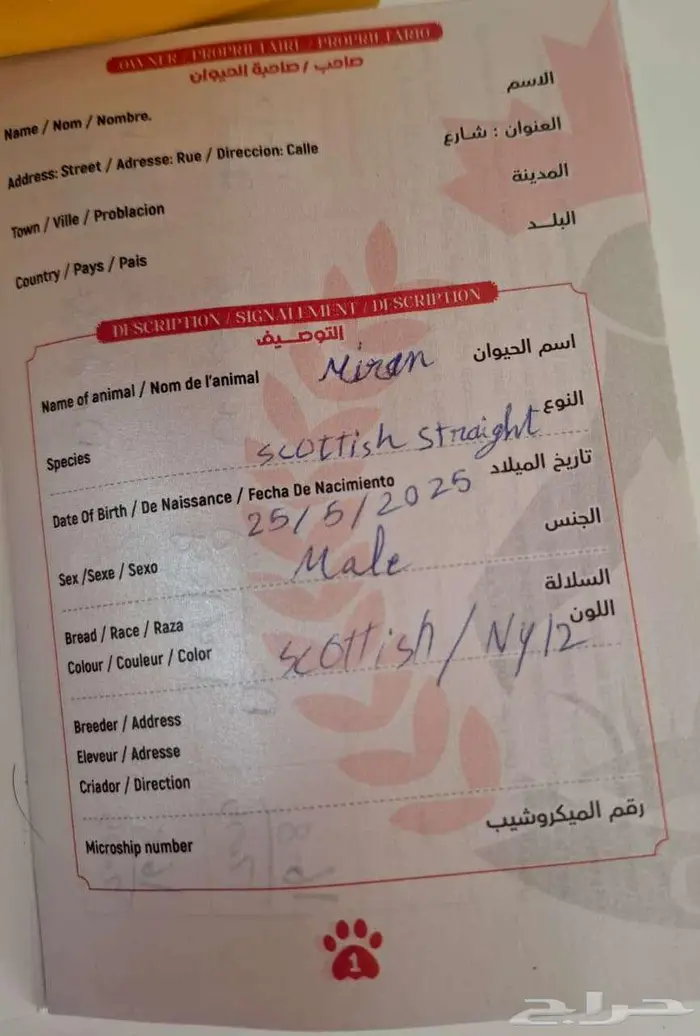 OWNER / PROPRIETAIRE / PROPRIETARIO
صاحب / صاحبة الحيوان
Name / Nom / Nombre. الاسم
Address: Street / Adresse: Rue / Direccion: Calle العنوان : شارع
Town / Ville / Problacion المدينة
Country / Pays / Pais البلد
DESCRIPTION / SIGNALEMENT / DESCRIPTION
التوصيف
Name of animal / Nom de l'animal Miran اسم الحيوان
Species scottish straight النوع
Date Of Birth / De Naissance / Fecha De Nacimiento 25/5/2025 تاريخ الميلاد
Sex /Sexe / Sexo Male الجنس
Bread / Race / Raza السلالة
Colour / Couleur / Color scottish / Ny12 اللون
Breeder / Address
Eleveur / Adresse
Criador / Direction
Microship number رقم الميكروشيب
1
حراج